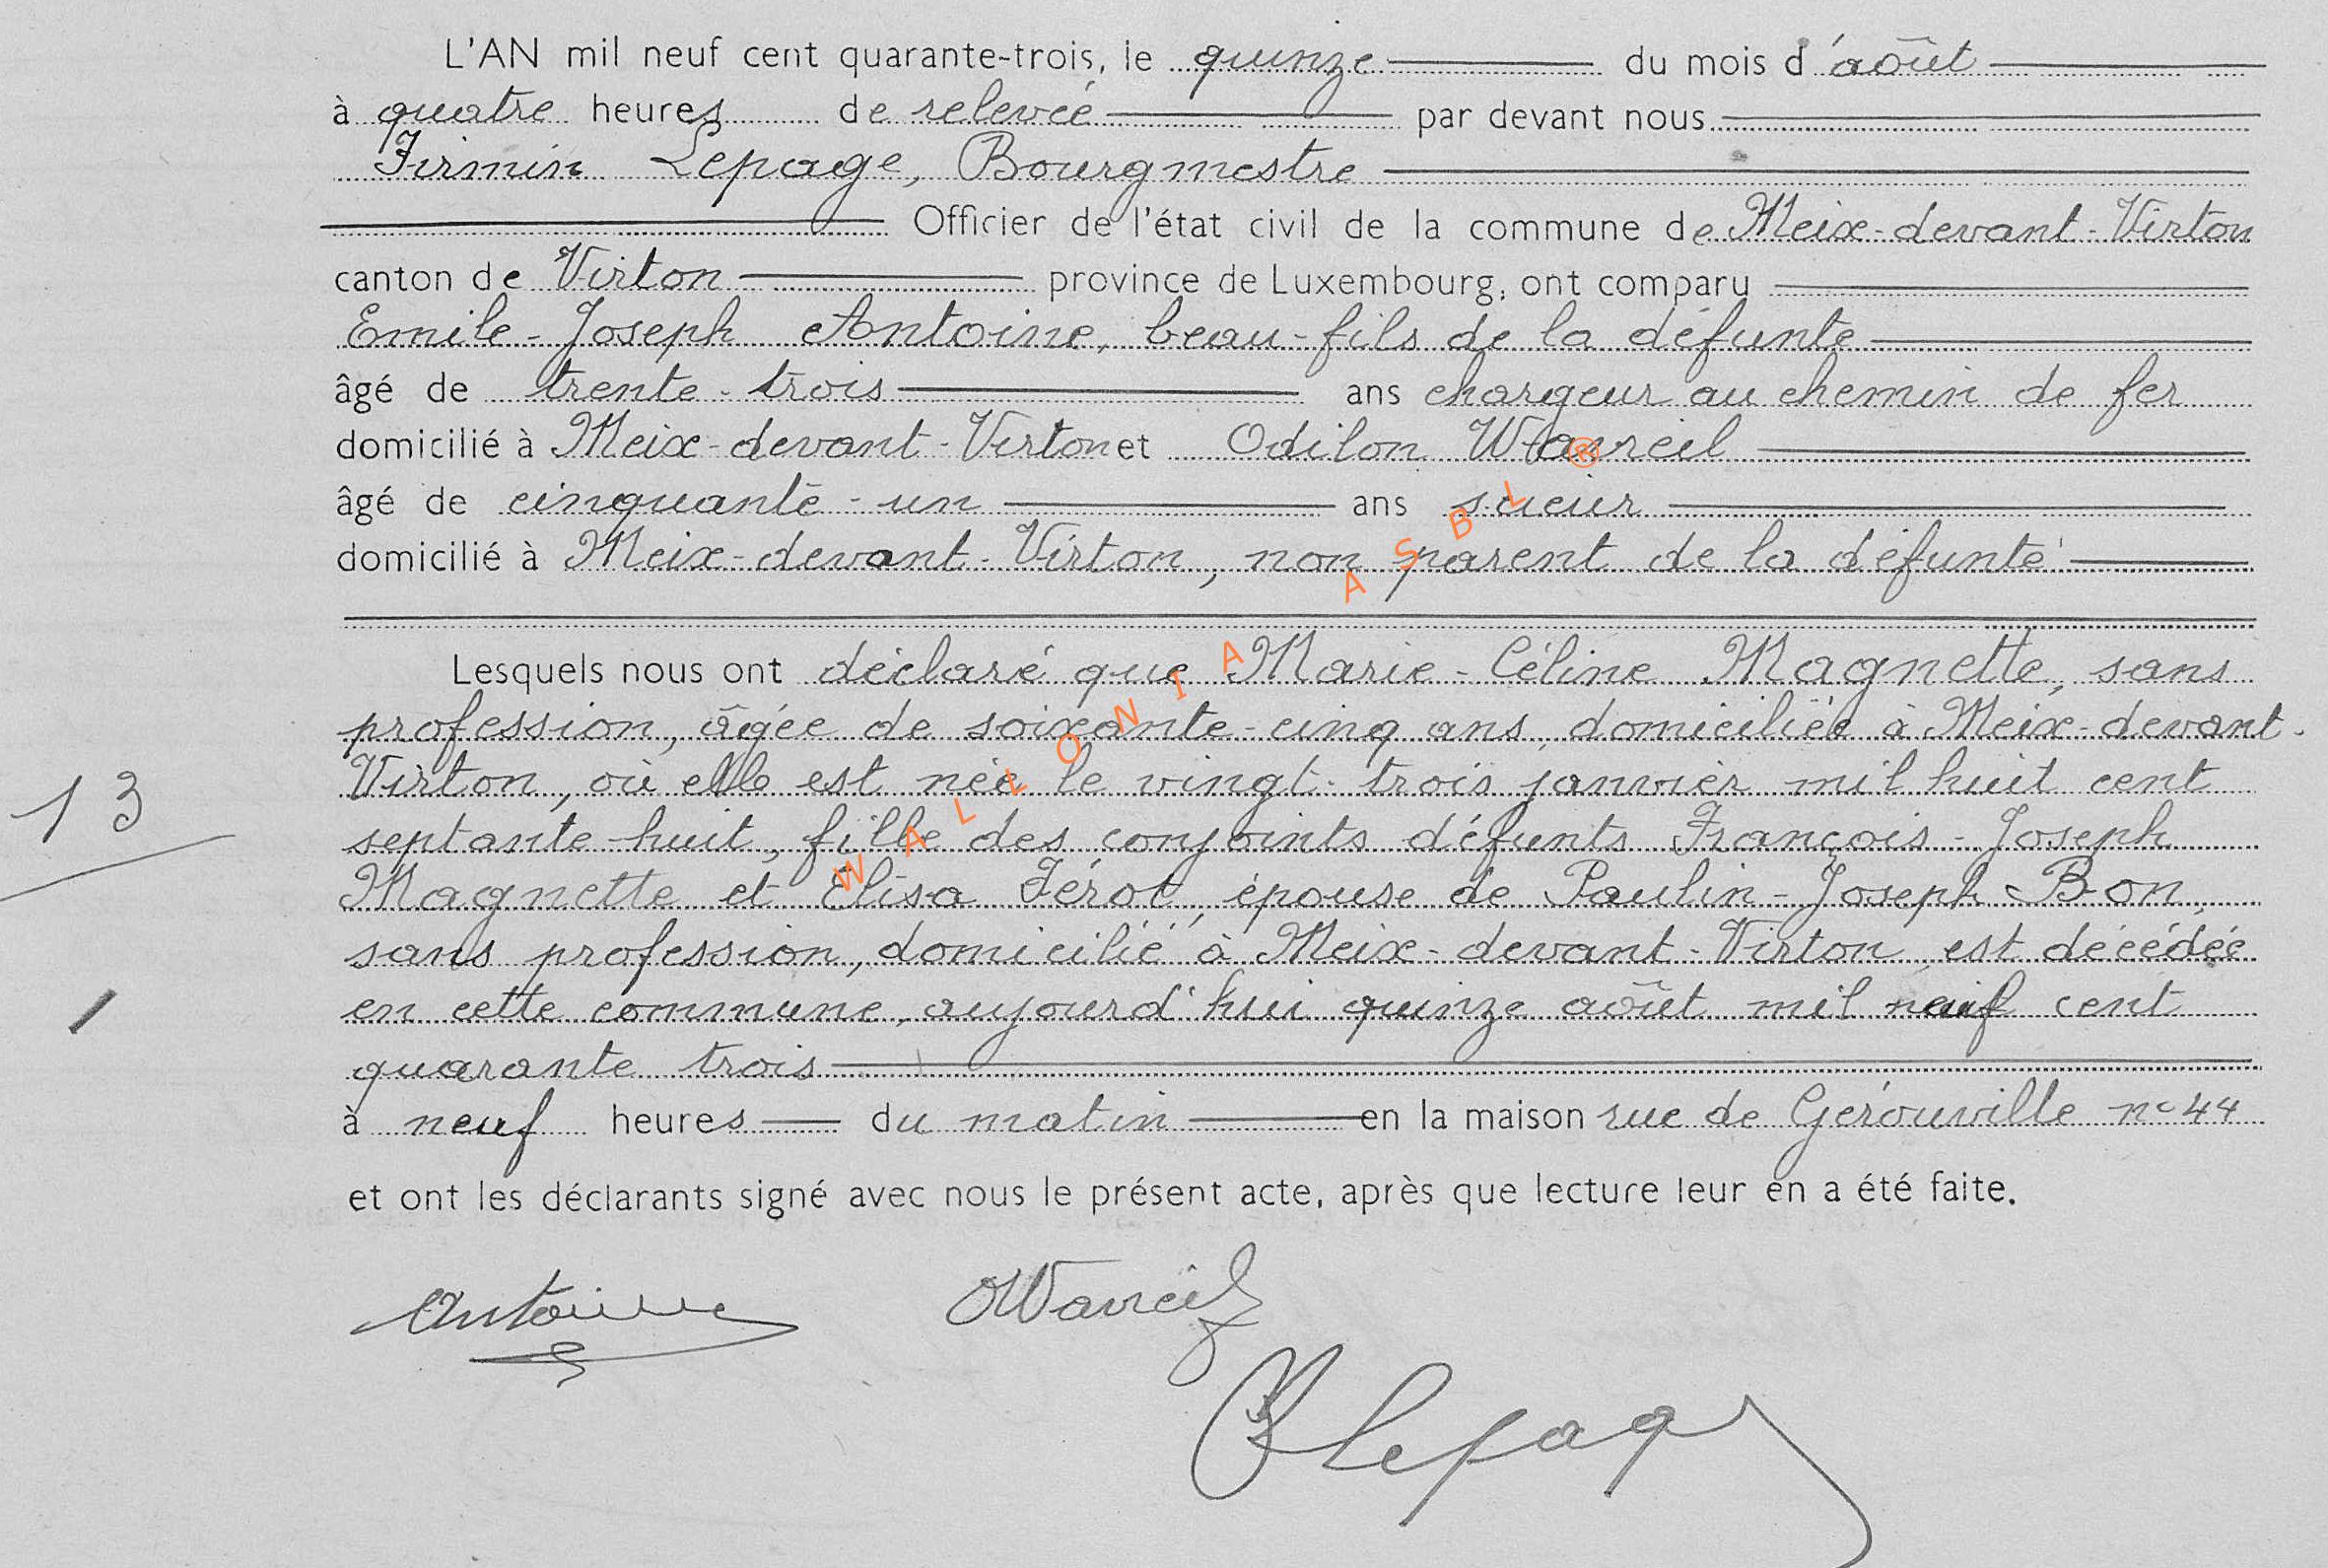 L'AN mil neuf cent quarante-trois, le quinze du mois d'août
à quatre heures de relevée par devant nous
Firmin Lepage, Bourgmestre
Officier de l'état civil de la commune de Meix-devant-Virton
canton de Virton province de Luxembourg, ont comparu
Emile-Joseph Antoine, beau-fils de la défunte
âgé de trente-trois ans chargeur au chemin de fer
domicilié à Meix-devant-Virton et Odilon Wavreil
âgé de cinquante-un ans sueur
domicilié à Meix-devant-Virton, non parent de la défunte
Lesquels nous ont déclaré que Marie-Céline Magnette, sans
profession, âgée de soixante-cinq ans, domiciliée à Meix-devant-
Virton, où elle est née le vingt-trois janvier mil huit cent
septante-huit, fille des conjoints défunts François-Joseph
13
Magnette et Elisa Férot, épouse de Paulin-Joseph Bon,
sans profession, domicilié à Meix-devant-Virton, est décédée
en cette commune, aujourd'hui quinze août mil neuf cent
quarante trois
à neuf heures du matin en la maison rue de Gérouville n° 44
et ont les déclarants signé avec nous le présent acte, après que lecture leur en a été faite.
Antoine OWavreil
FLepage
WALLONIA ASBL ®